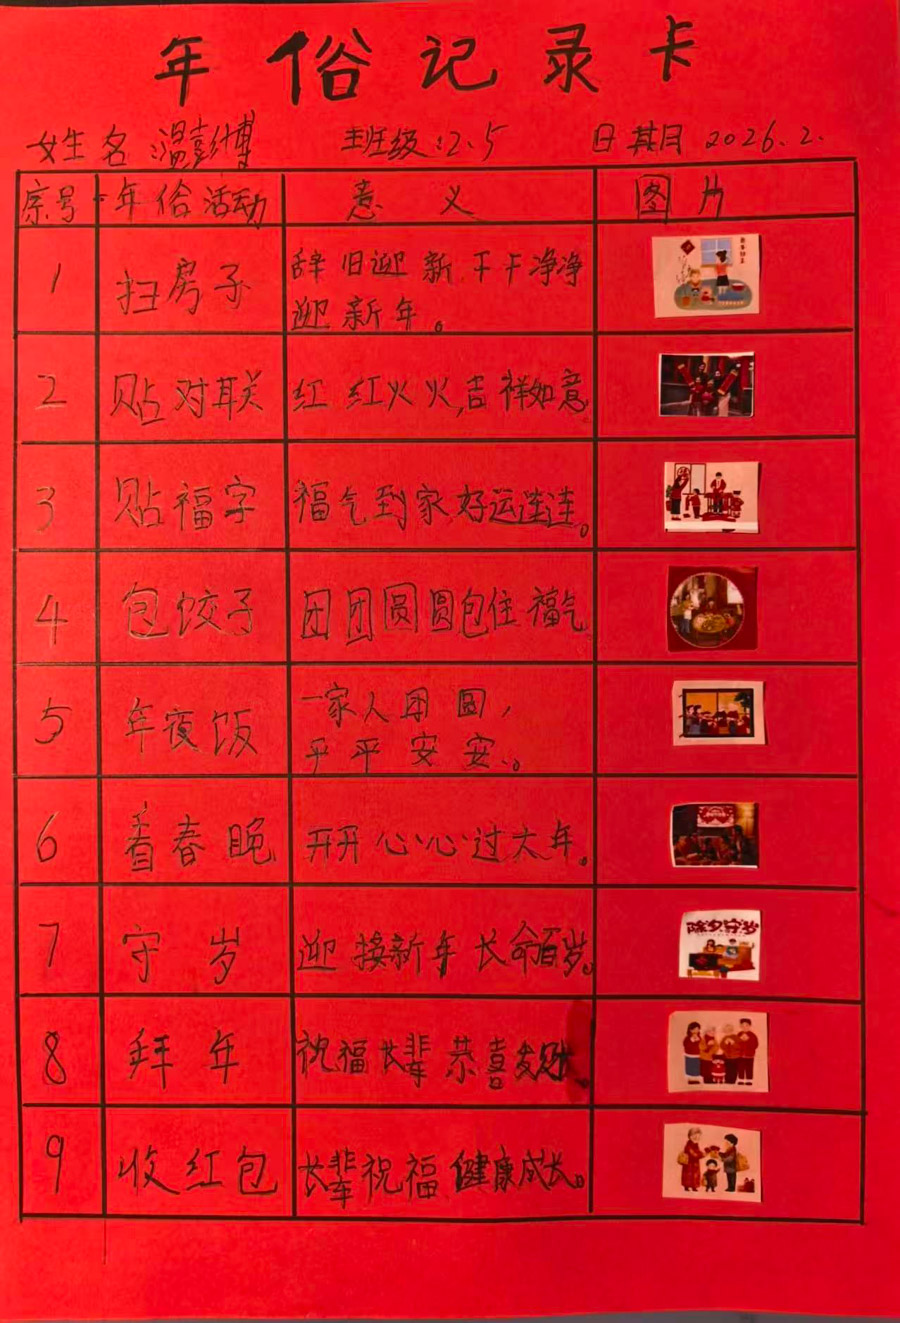 年俗记录卡
姓名 温彭博 班级:2.5 日期 2026.2.
序号 年俗活动 意义 图片
1 扫房子 辞旧迎新干干净净
迎新年。
2 贴对联 红红火火,吉祥如意
3 贴福字 福气到家好运连连。
4 包饺子 团团圆圆包住福气
5 年夜饭 一家人团圆,
平平安安。
6 看春晚 开开心心过大年。
7 守岁 迎接新年长命百岁。
除夕守岁
8 拜年 祝福长辈恭喜发财。
9 收红包 长辈祝福健康成长。